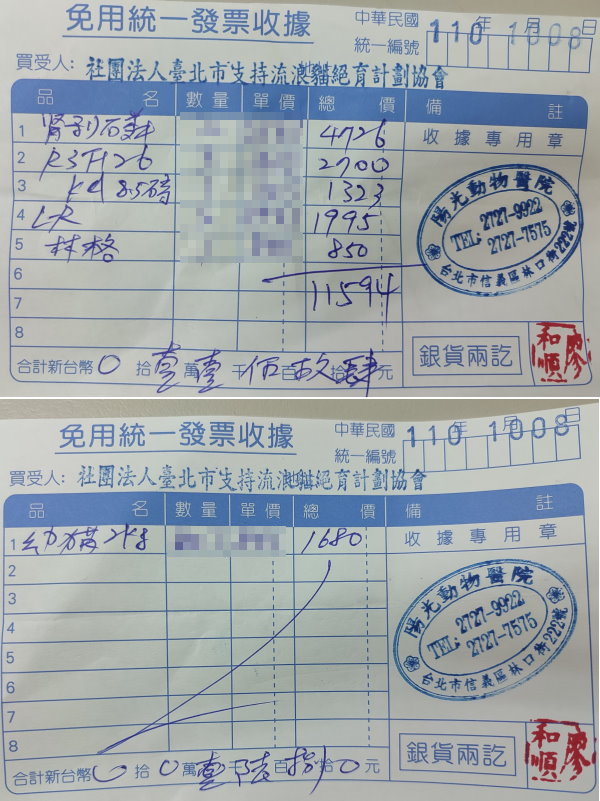 免用統一發票收據
中華民國 110年 10月08日
統一編號
買受人: 社團法人臺北市支持流浪貓絕育計劃協會
品名 數量 單價 總價 備註
1 腎利石葬 4726 收據專用章
2 P3 7126 2700
3 K4 8.5磅 1323
4 LR 1995
5 林格 850
6
7 11594
8
陽光動物醫院
TEL: 2727-9922
2727-7575
台北市信義區林口街222號
銀貨兩訖
廖和順
合計新台幣 0 拾 壹 萬 壹 千 伍 百 玖 拾 肆 元
免用統一發票收據
中華民國 110年 10月08日
統一編號
買受人: 社團法人臺北市支持流浪貓絕育計劃協會
品名 數量 單價 總價 備註
1 幼貓2kg 1680 收據專用章
2
3
4
5
6
7
8
陽光動物醫院
TEL: 2727-9922
2727-7575
台北市信義區林口街222號
銀貨兩訖
廖和順
合計新台幣 0 拾 0 萬 壹 千 陸 百 捌 拾 0 元